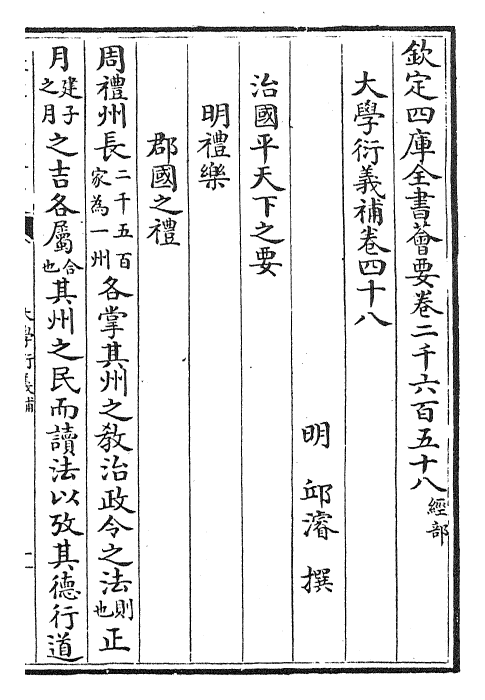 欽定四庫全書薈要卷二千六百五十八 經部
大學衍義補卷四十八
明 邱濬 撰
治國平天下之要
明禮樂
郡國之禮
周禮州長二千五百家為一州各掌其州之教治政令之法則也正
月建子之月之吉各屬合也其州之民而讀法以攷其德行道
大學衍義補